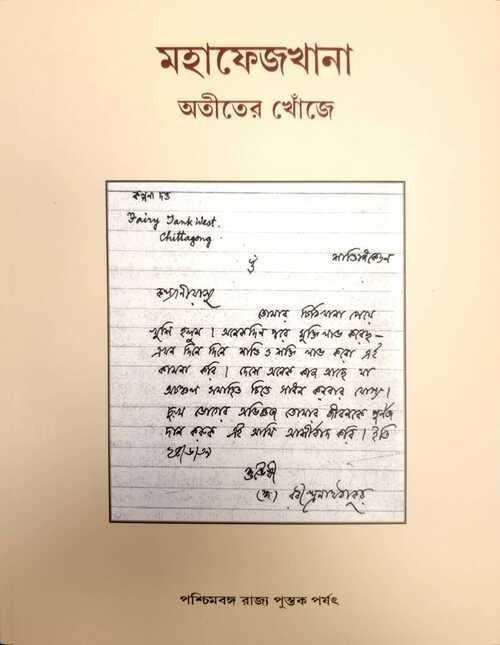 মহাফেজখানা
অতীতের খোঁজে
কল্পনা দত্ত
Fairy Tank West.
Chittagong.
ওঁ
শান্তিনিকেতন
কল্যাণীয়াসু
তোমার চিঠিখানা পেয়ে
খুসি হলুম। অনেকদিন পরে মুক্তি লাভ করেছ—
এখন দিনে দিনে শান্তি ও শক্তি লাভ করো এই
কামনা করি। দেশে অনেক কাজ আছে যা
অচঞ্চল সমাহিত চিত্তে সাধন করবার যোগ্য।
দুঃখ ভোগের অভিজ্ঞতা তোমার জীবনকে পূর্ণতা
দান করুক এই আমি আশীর্বাদ করি। ইতি
শুভৈষী
(স্বাঃ) রবীন্দ্রনাথ ঠাকুর
পশ্চিমবঙ্গ রাজ্য পুস্তক পর্ষৎ